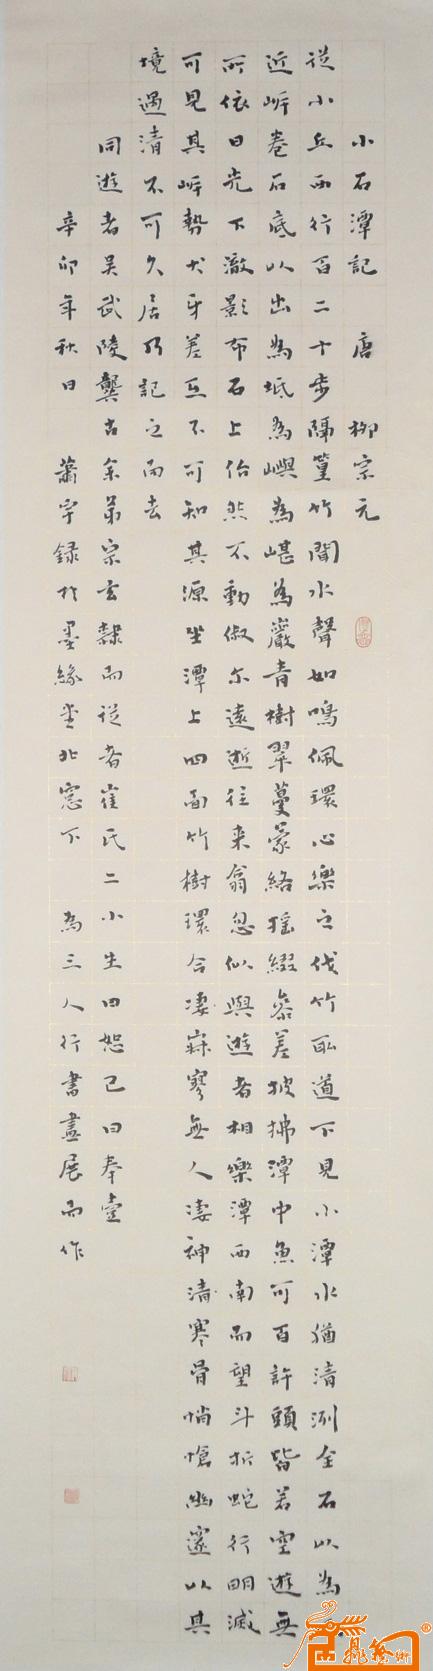 小石潭記　唐　柳宗元
從小丘西行百二十步隔篁竹聞水聲如鳴佩環心樂之伐竹取道下見小潭水猶清洌全石以為
近岸卷石底以出為坻為嶼為嵁為巖青樹翠蔓蒙絡搖綴參差披拂潭中魚可百許頭皆若空遊無
所依日光下澈影布石上佁然不動俶尔遠逝往来翕忽似與遊者相樂潭西南而望斗折蛇行明滅
可見其岸勢犬牙差互不可知其源坐潭上四面竹樹環合凄寐寥無人凄神清寒骨悄愴幽邃以其
境過清不可久居乃記之而去
同遊者吴武陵龔古余弟宗玄隸而從者崔氏二小生曰恕己曰奉壹
辛卯年秋日　蕭宇録於墨緣堂北窓下　為三人行書畫展而作